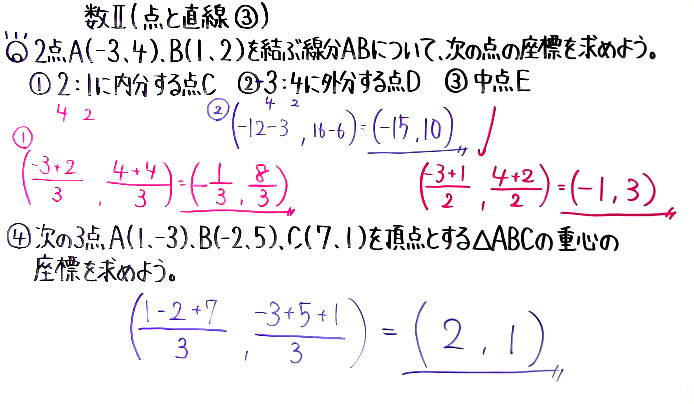 数Ⅱ(点と直線③)
2点A(-3,4)、B(1,2)を結ぶ線分ABについて、次の点の座標を求めよう。
① 2:1に内分する点C ② 3:4に外分する点D ③ 中点E
4 2
① (-3+2/3, 4+4/3)=(-1/3, 8/3)
4 2
② (-12-3, 16-6)=(-15,10)
(-3+1/2, 4+2/2)=(-1,3)
④ 次の3点A(1,-3)、B(-2,5)、C(7,1)を頂点とする△ABCの重心の
座標を求めよう。
(1-2+7/3, -3+5+1/3) = (2,1)